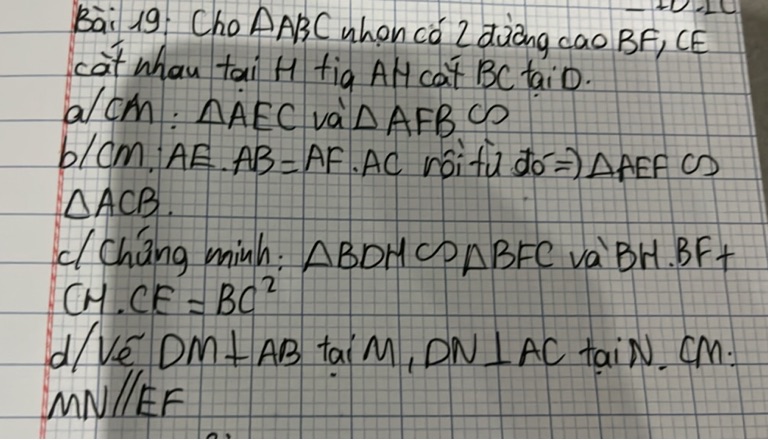 Bài 19: Cho ΔABC nhọn có 2 đường cao BF, CE
cắt nhau tại H tia AH cắt BC tại D.
a/ CM: ΔAEC và ΔAFB ∽
b/ CM: AE.AB=AF.AC rồi từ đó => ΔAEF ∽
ΔACB.
c/ Chứng minh: ΔBDH ∽ ΔBFC và BH.BF+
CH.CE=BC²
d/ Vẽ DM⊥AB tại M, DN⊥AC tại N. CM:
MN//EF